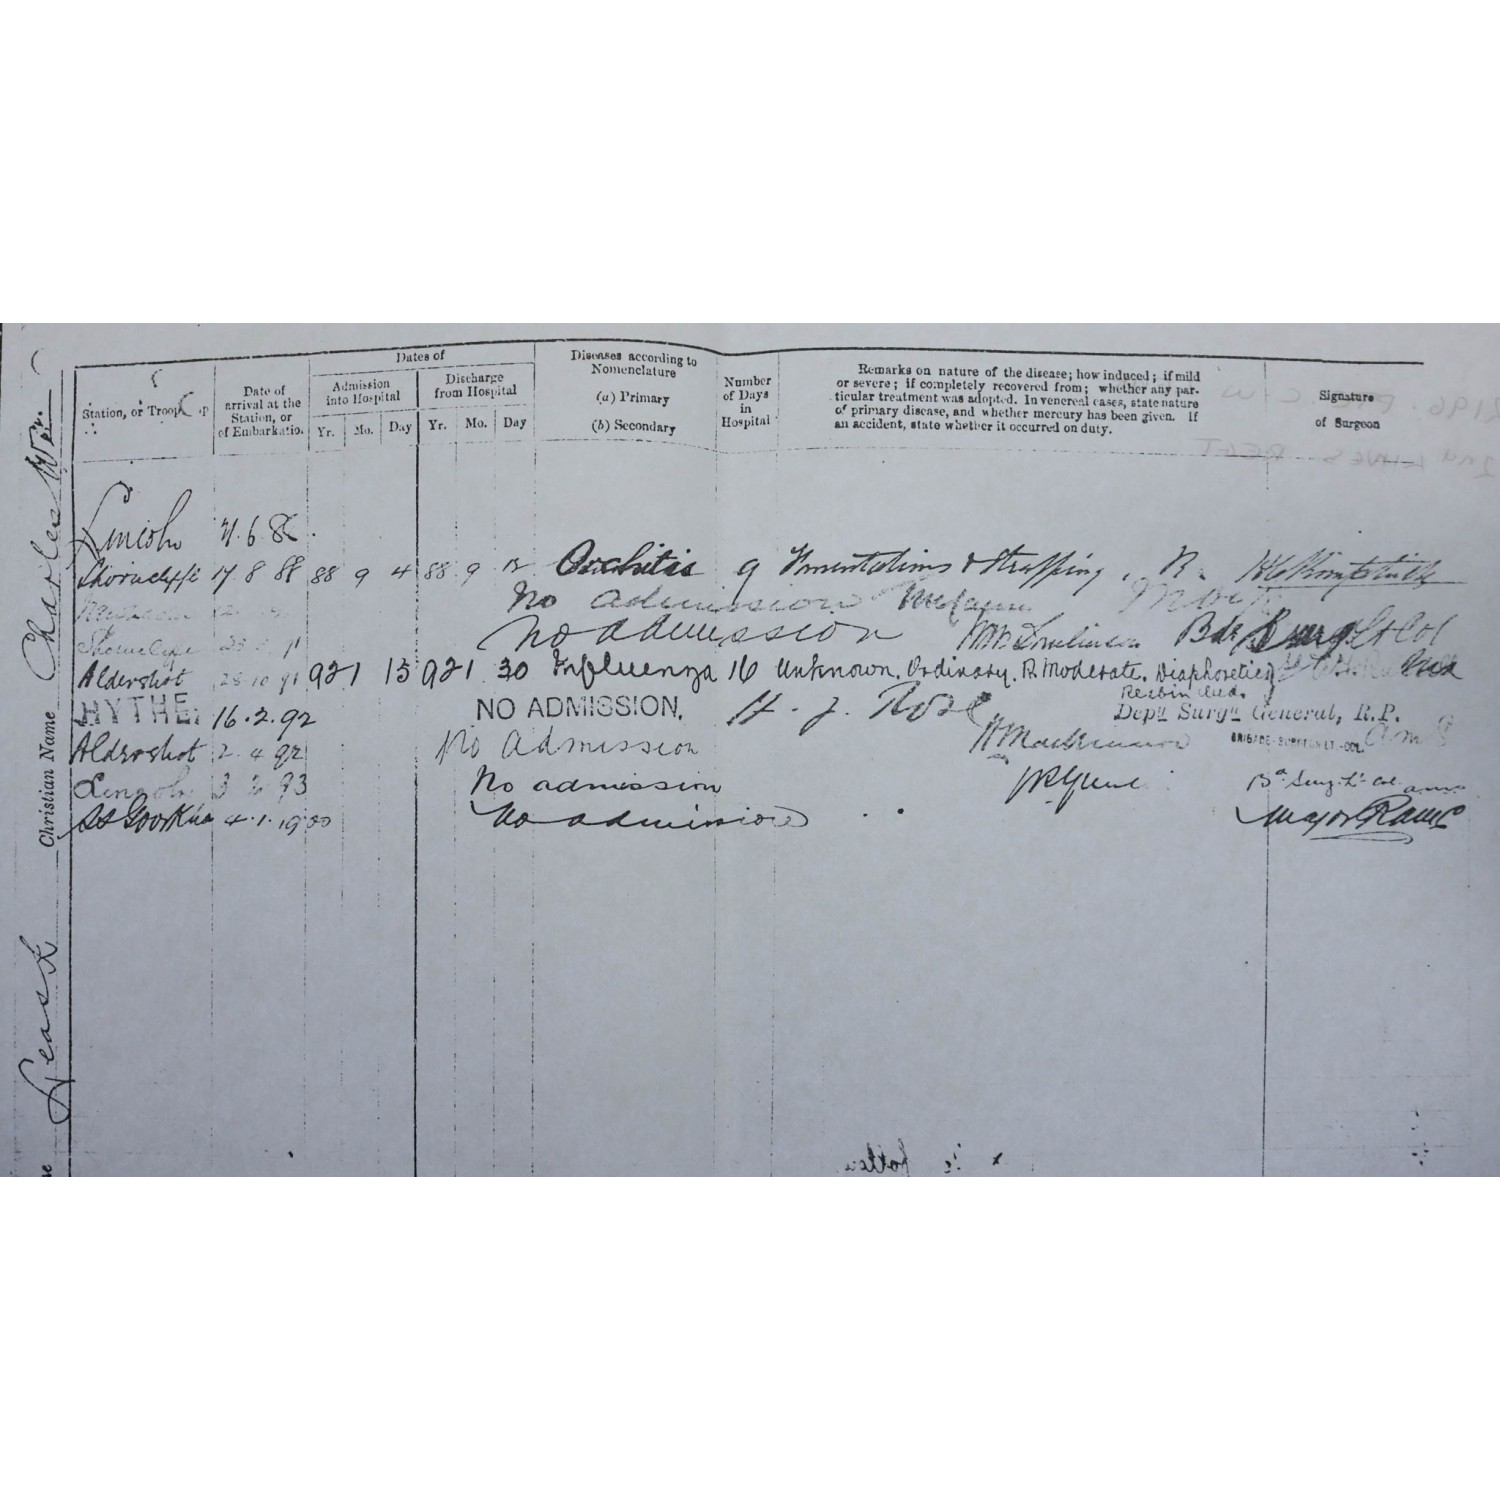 Station, or Troop
Date of arrival at the Station, or of Embarkation
Dates of
Admission into Hospital
Yr. Mo. Day
Discharge from Hospital
Yr. Mo. Day
Diseases according to Nomenclature
(a) Primary
(b) Secondary
Number of Days in Hospital
Remarks on nature of the disease; how induced; if mild or severe; if completely recovered from; whether any particular treatment was adopted. In venereal cases, state nature of primary disease, and whether mercury has been given. If an accident, state whether it occurred on duty.
Signature of Surgeon
Lincoln .6.8
Shorncliffe 17 8 88 88 9 4 88 9 12 Orchitis 9 Fomentations & Strapping. R.
No admission
Shorncliffe No admission Tomlinson Bde Surg Lt Col
Aldershot 28 10 91 92 1 15 92 1 30 Influenza 16 Unknown. Ordinary. R. Moderate. Diaphoretics
HYTHE. 16.2.92 NO ADMISSION. H. J. Rose Depy. Surgn. General, R.P.
Aldershot 2 4 92 No admission BRIGADE-SURGEON LT.-COL.
Lincoln 3 2 93 No admission
SS Goorkha 4.1.1900 No admission Major RAMC
Christian Name Charles Wm.
Leask